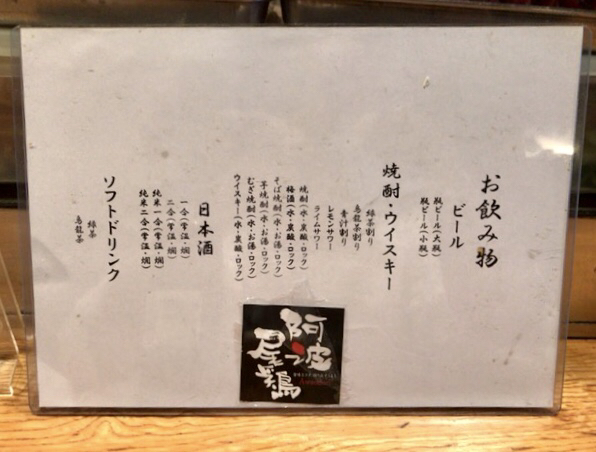 お飲み物
ビール
瓶ビール(大瓶)
瓶ビール(小瓶)
焼酎・ウイスキー
緑茶割り
烏龍茶割り
青汁割り
レモンサワー
ライムサワー
焼酎(水・炭酸・ロック)
梅酒(水・炭酸・ロック)
そば焼酎(水・お湯・ロック)
芋焼酎(水・お湯・ロック)
むぎ焼酎(水・お湯・ロック)
ウイスキー(水・炭酸・ロック)
日本酒
一合(常温・燗)
二合(常温・燗)
純米一合(常温・燗)
純米二合(常温・燗)
ソフトドリンク
緑茶
烏龍茶
阿波
尾鶏